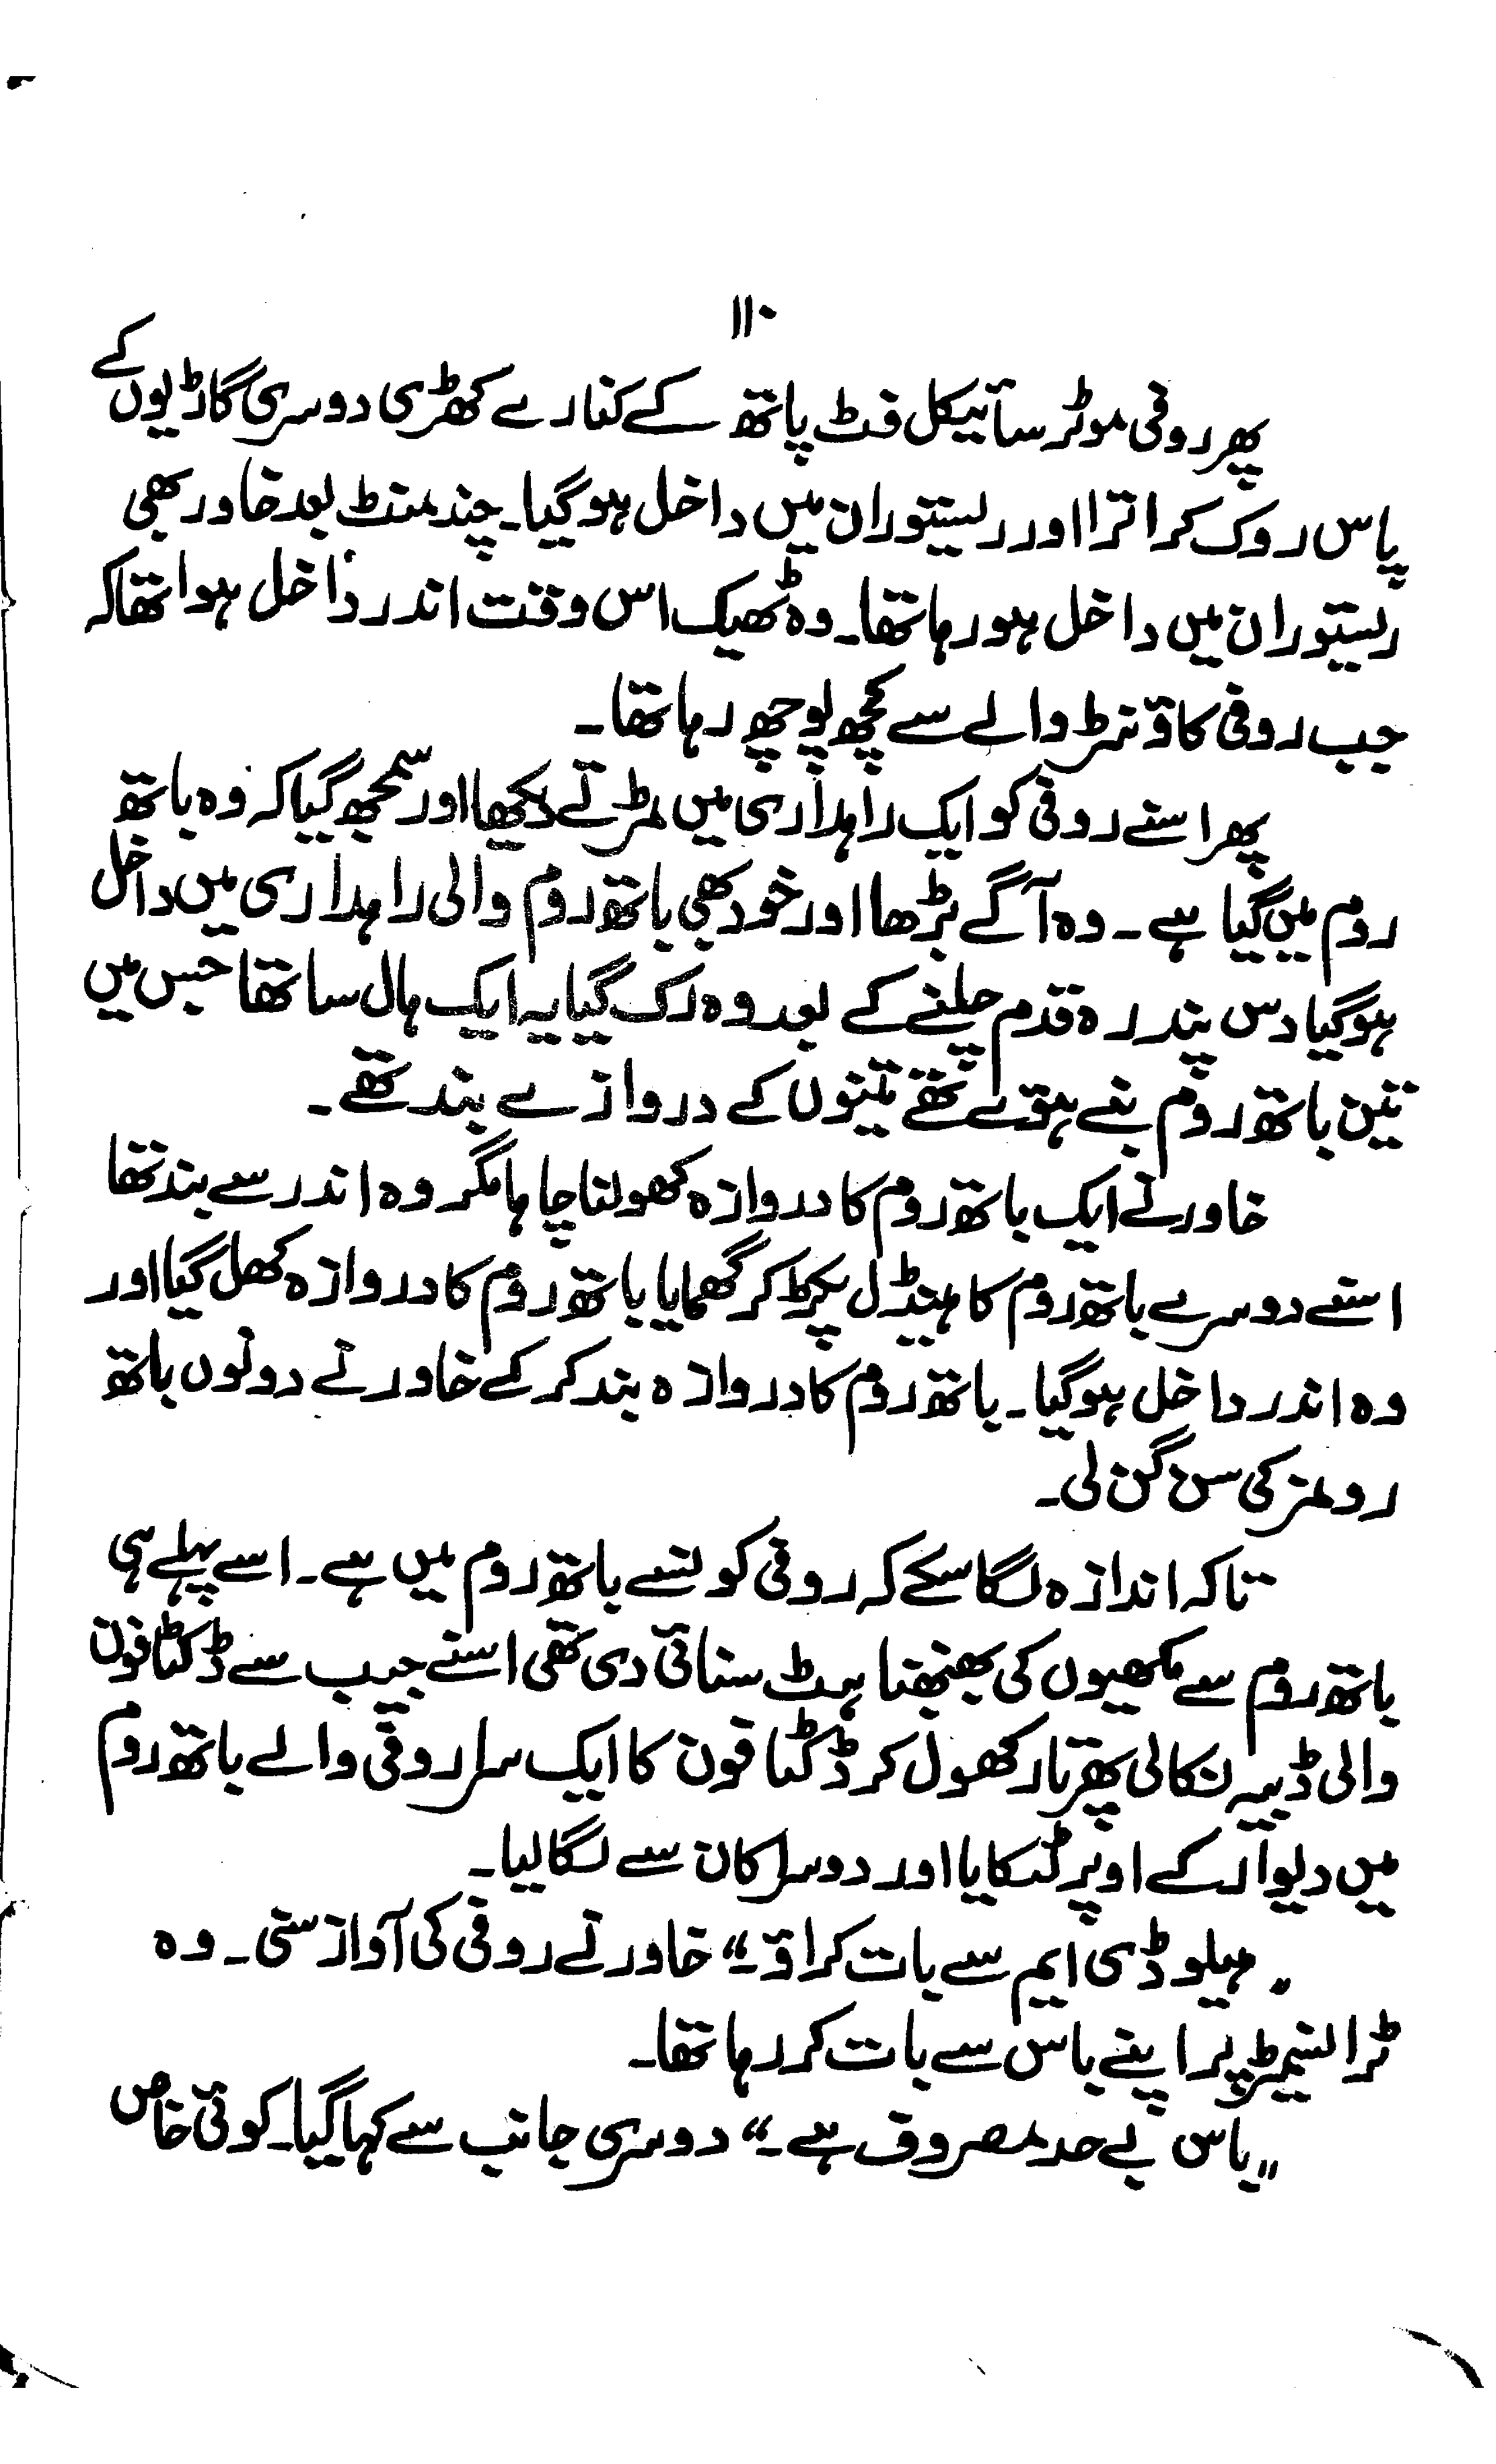 ۱۱۰
پھر روفی موٹر سائیکل فٹ پاتھ کے کنارے کھڑی دوسری گاڑیوں کے
پاس روک کر اترا اور ریستوران میں داخل ہو گیا۔ چند منٹ بعد خاور بھی
ریستوران میں داخل ہو رہا تھا۔ وہ ٹھیک اس وقت اندر داخل ہوا تھا کہ
جب روفی کاؤنٹر والے سے کچھ پوچھ رہا تھا۔
پھر اسنے روفی کو ایک راہداری میں مڑتے دیکھا اور سمجھ گیا کہ وہ باتھ
روم میں گیا ہے۔ وہ آگے بڑھا اور خود بھی باتھ روم والی راہداری میں داخل
ہو گیا دس پندرہ قدم چلنے کے بعد وہ رک گیا یہ ایک ہال سا تھا جس میں
تین باتھ روم بنے ہوئے تھے تینوں کے دروازے بند تھے۔
خاور نے ایک باتھ روم کا دروازہ کھولنا چاہا مگر وہ اندر سے بند تھا
اسنے دوسرے باتھ روم کا ہینڈل پکڑ کر گھمایا باتھ روم کا دروازہ کھل گیا اور
وہ اندر داخل ہو گیا۔ باتھ روم کا دروازہ بند کر کے خاور نے دونوں باتھ
رومز کی سن گن لی۔
تاکہ اندازہ لگا سکے کہ روفی کونسے باتھ روم میں ہے۔ اسے پہلے ہی
باتھ روم سے مکھیوں کی بھنبھناہٹ سنائی دی تھی اسنے جیب سے ڈکٹافون
والی ڈبیہ نکالی پھر تار کھول کر ڈکٹافون کا ایک سرا روفی والے باتھ روم
میں دیوار کے اوپر لٹکایا اور دوسرا کان سے لگا لیا۔
"ہیلو ڈی ایم سے بات کراؤ۔" خاور نے روفی کی آواز سنی۔ وہ
ٹرانسیمٹر پر اپنے باس سے بات کر رہا تھا۔
"باس بے حد مصروف ہے۔" دوسری جانب سے کہا گیا۔ کوئی خاص